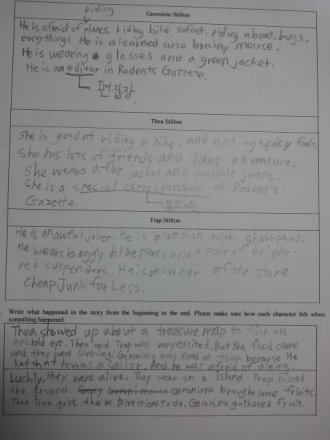 Geronimo Stilton
riding
He is afraid of planes. riding bike riding a boat, bugs,
everything! He is a learned and brainy mouse.
He is wearing glasses and a green jacket.
He is an editor in Rodents Gazette.
편집장
Thea Stilton
She is good at riding a bike, and eating spicy foods.
She has lots of friends and likes adventure.
She wears a fur jacket and purple jeans.
She is a special correspondent at Rodent's
Gazette.
Trap Stilton
He is an awful joker. He is plumpish with short paws.
He wears baggy blue pants and a pair of bright
red suspenders. He is an owner of the store
Cheap Junk for Less.
Write what happened in the story from the beginning to the end. Please make sure how each character felt when
something happened.
Thea showed up about a treasure map to find an
eye. Thea and Trap was very excited. But the flood came
and they were sinking. Geronimo was mad at Trap because He
that he was a sailor. And he was afraid of dieing.
Luckly, they were alive. They went on a island. Trap kissed
the ground. Geronimo brought some fruits.
Then Thea gave them Directions to do. Geronimo gathered fruit.